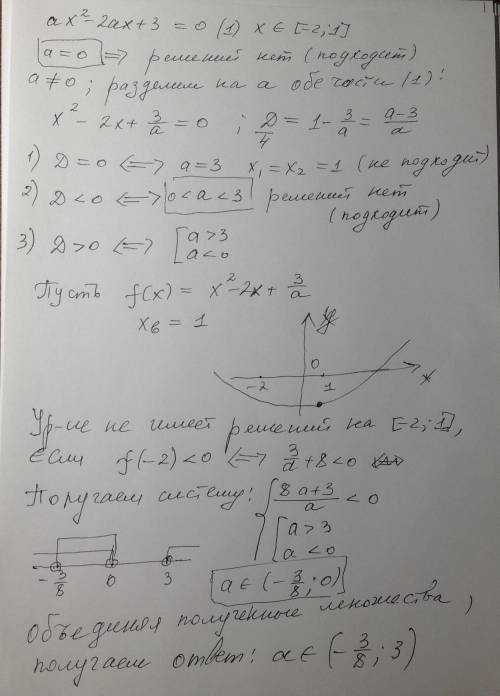 ax² - 2ax + 3 = 0 (1) x ∈ [-2; 1]
a = 0 ⟹ решений нет (подходит)
a ≠ 0 ; разделим на a обе части (1):
x² - 2x + 3/a = 0 ; D/4 = 1 - 3/a = a-3/a
1) D = 0 ⟺ a = 3 x₁ = x₂ = 1 (не подходит)
2) D < 0 ⟺ 0 < a < 3 решений нет
(подходит)
3) D > 0 ⟺ [ a > 3
a < 0
Пусть f(x) = x² - 2x + 3/a
xв = 1
y
0
-2 1 x
Ур-ие не имеет решений на [-2; 1],
если f(-2) < 0 ⟺ 3/a + 8 < 0
Получаем систему: { 8a+3/a < 0
[ a > 3
a < 0
-3/8 0 3
a ∈ (-3/8; 0)
Объединяя полученные множества,
получаем ответ: a ∈ (-3/8; 3)